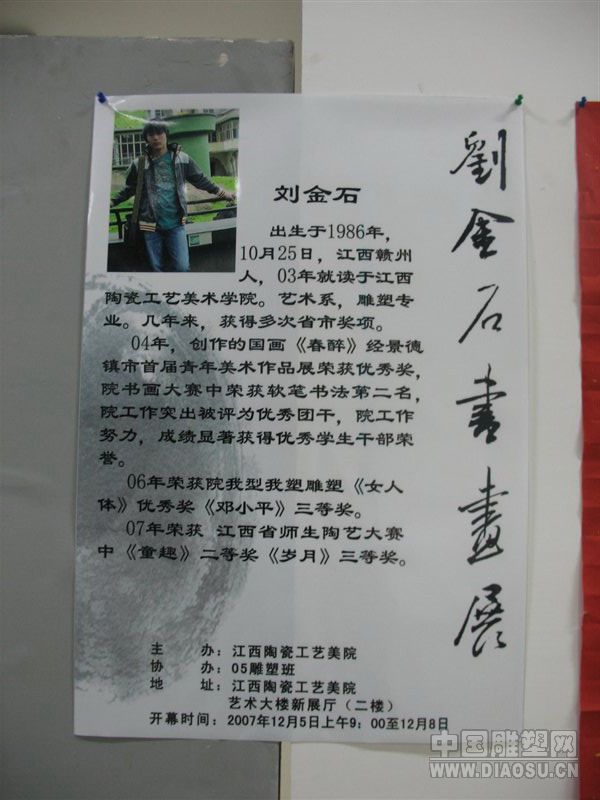 劉金石書畫展
刘金石
出生于1986年，
10月25日，江西赣州
人，03年就读于江西
陶瓷工艺美术学院。艺术系，雕塑专
业。几年来，获得多次省市奖项。
04年，创作的国画《春醉》经景德
镇市首届青年美术作品展荣获优秀奖，
院书画大赛中荣获软笔书法第二名，
院工作突出被评为优秀团干，院工作
努力，成绩显著获得优秀学生干部荣
誉。
06年荣获院我型我塑雕塑《女人
体》优秀奖《邓小平》三等奖。
07年荣获 江西省师生陶艺大赛
中《童趣》二等奖《岁月》三等奖。
主 办：江西陶瓷工艺美院
协 办：05雕塑班
地 址：江西陶瓷工艺美院
艺术大楼新展厅（二楼）
开幕时间：2007年12月5日上午9：00至12月8日
中国雕塑网
WWW.DIAOSU.CN